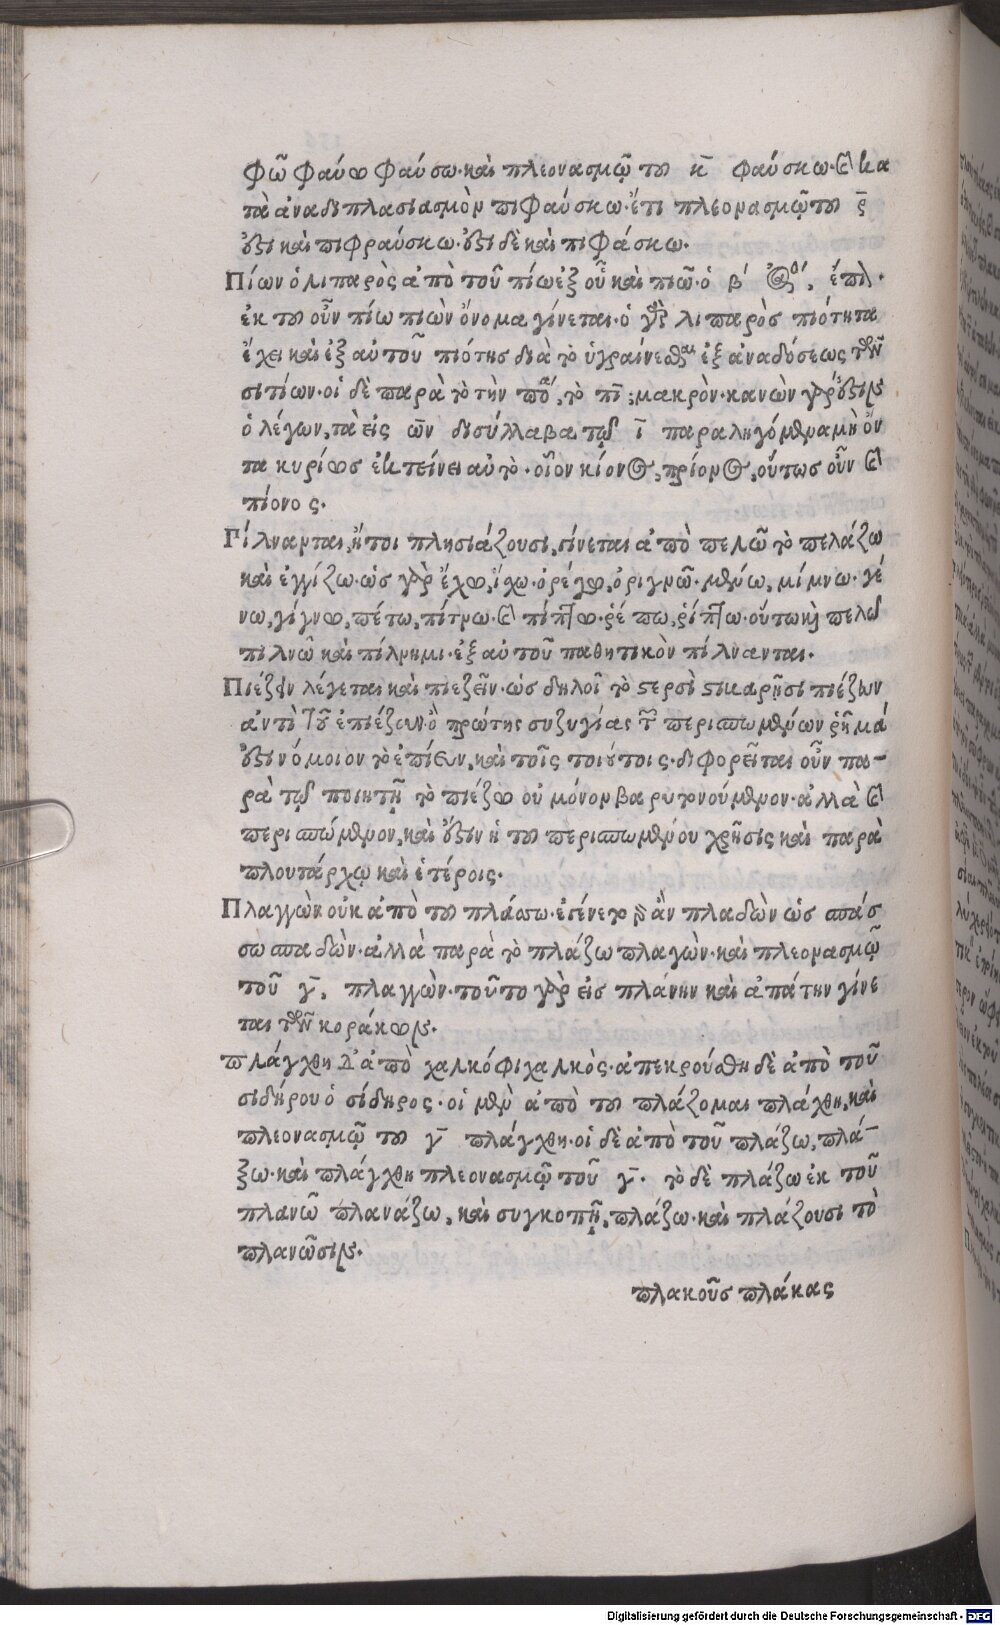 φῶ φαύω φαύσω· καὶ πλεονασμῷ τοῦ κ̄ φαύσκω· καὶ κα
τὰ ἀναδιπλασιασμὸν πιφαύσκω· ἔτι πλεονασμῷ τοῦ ρ̄
ἐστι καὶ πιφραύσκω· ἐστι δὲ καὶ πιφάσκω.
Πίων ὁ λιπαρὸς ἀπὸ τοῦ πίω ἐξ οὗ καὶ πιῶ· ὁ β´ ἀόριστος, ἔπιον·
ἐκ τοῦ οὖν πίω πιὼν ὄνομα γίνεται· ὁ γὰρ λιπαρὸς πιότητα
ἔχει καὶ ἐξ αὐτοῦ πιότης διὰ τὸ ὑγραίνεσθαι ἐξ ἀναδόσεως τῶν
σιτίων· οἱ δὲ παρὰ τὸ τὴν πόαν, τὸ πῑ; μακρὸν· κανὼν γάρ ἐστιν
ὁ λέγων, τὰ εἰς ων δισύλλαβα τῷ ῑ παραληγόμενα μὴ ὄν
τα κυρίως ἐκτείνει αὐτὸ· οἷον κίονος, πρίονος, οὕτως οὖν καὶ
πίονος.
Πίλνανται, ἤτοι πλησιάζουσι, γίνεται ἀπὸ πελῶ τὸ πελάζω
καὶ ἐγγίζω· ὡς γὰρ ἔχω, ἴχω· ὀρέγω, ὀριγνῶ· μένω, μίμνω· γέ
νω, γίγνω, πέτω, πίτνω· καὶ πίπτω· ῥέπω, ῥίπτω· οὕτω καὶ πελῶ
πιλνῶ καὶ πίλνημι· ἐξ αὐτοῦ παθητικὸν πίλνανται.
Πιέζειν λέγεται καὶ πιεζεῖν· ὡς δηλοῖ τὸ χερσὶ στιβαρῇσι πιέζευν
ἀντὶ τοῦ ἐπιέζευν· ὃ πρώτης συζυγίας τῶν περισπωμένων ῥῆμά
ἐστιν ὅμοιον τὸ ἐποίευν, καὶ τοῖς τοιούτοις· διφορεῖται οὖν πα-
ρὰ τῷ ποιητῇ τὸ πιέζω οὐ μόνον βαρυτονούμενον· ἀλλὰ καὶ
περισπώμενον, καὶ ἔστιν ἡ τοῦ περισπωμένου χρῆσις καὶ παρὰ
πλουτάρχῳ καὶ ἑτέροις.
Πλαγγὼν οὐκ ἀπὸ τοῦ πλάσσω· ἐγένετο γὰρ ἂν πλαδὼν ὡς σπάσ
σω σπαδὼν· ἀλλὰ παρὰ τὸ πλάζω πλαγὼν· καὶ πλεονασμῷ
τοῦ γ̄, πλαγγὼν· τοῦτο γὰρ εἰς πλάνην καὶ ἀπάτην γίνε
ται τῶν κοράκων.
πλάγχθη δ' ἀπὸ χαλκόφι χαλκὸς· ἀπεκρούσθη δὲ ἀπὸ τοῦ
σιδήρου ὁ σίδηρος· οἱ μὲν ἀπὸ τοῦ πλάζομαι πλάχθη, καὶ
πλεονασμῷ τοῦ γ̄ πλάγχθη· οἱ δὲ ἀπὸ τοῦ πλάζω, πλά-
ξω· καὶ πλάγχθη πλεονασμῷ τοῦ γ̄· τὸ δὲ πλάζω ἐκ τοῦ
πλανῶ πλανάζω, καὶ συγκοπῇ, πλάζω· καὶ πλάζουσι τὸ
πλανῶσιν.
πλακοῦς πλάκας
Digitalisierung gefördert durch die Deutsche Forschungsgemeinschaft - DFG